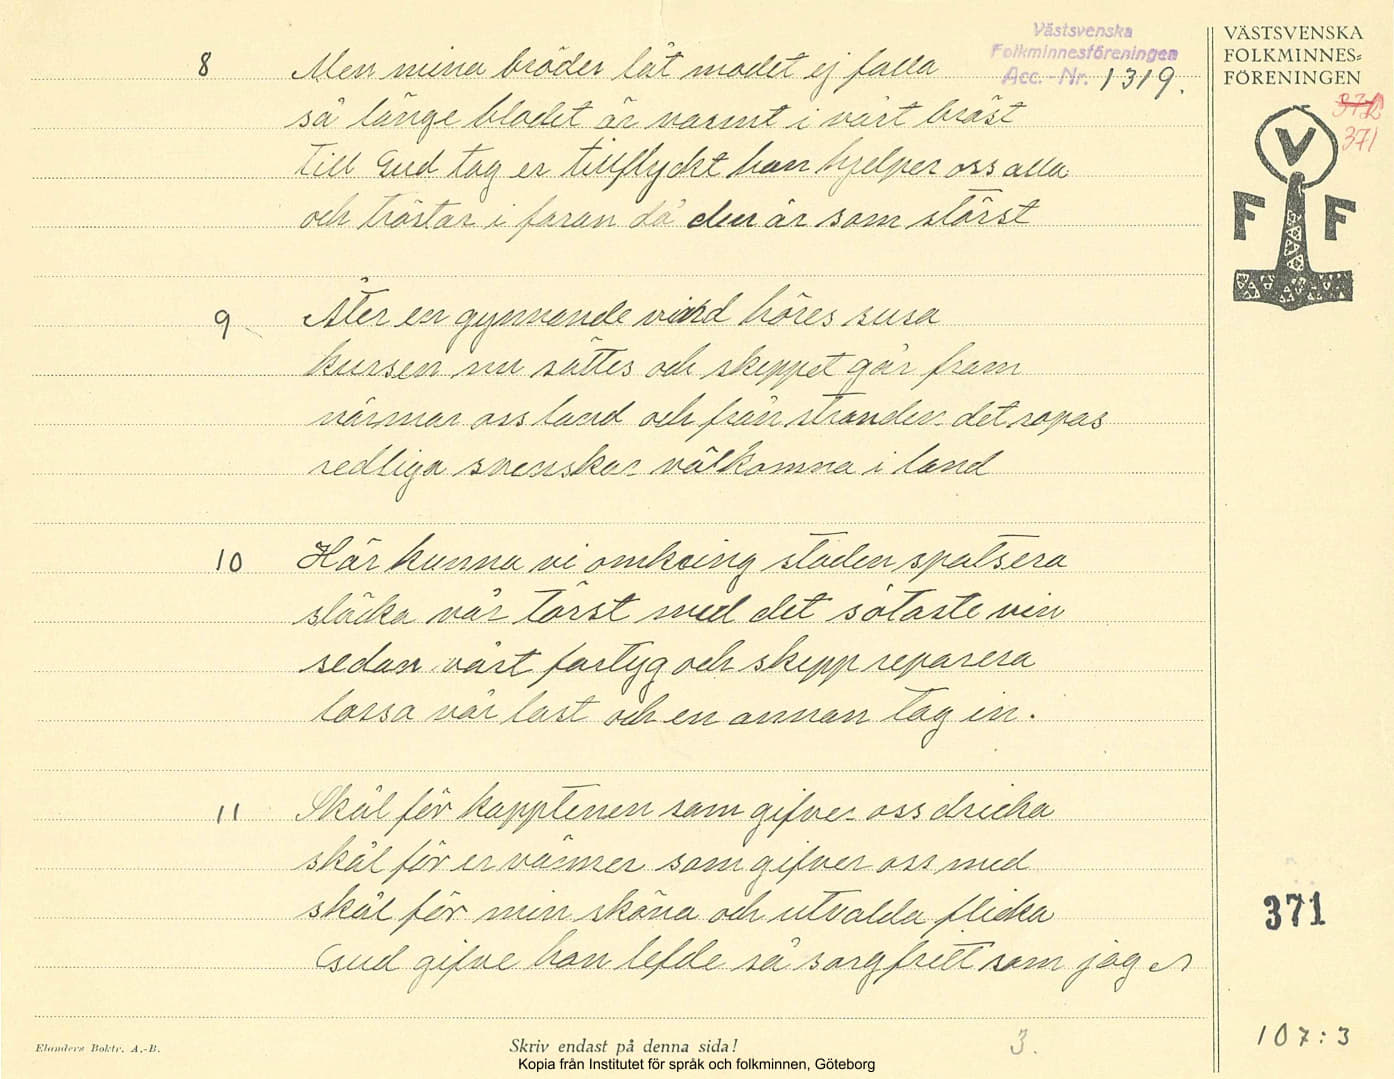 Västsvenska
Folkminnesföreningen
Acc.-Nr. 1319.
VÄSTSVENSKA
FOLKMINNES=
FÖRENINGEN
372
371
V
F F
8 Men mina bröder låt modet ej falla
så länge blodet är varmt i vårt bräst
Till Gud tag er tillflyckt han hjelper oss alla
och tröstar i faran då den är som störst
9 Åter en gynnande vind höres susa
kursen nu sättes och skeppet går fram
närmar oss land och från stranden det ropas
redliga svenskar välkomna i land
10 Här kunna vi omkring staden spatsera
släcka vår törst med det sötaste vin
sedan vårt fartyg och skepp reparera
lossa vår last och en annan tag in.
11 Skål för kapptenen som gifver oss dricka
skål för er vänner som gifver oss med
skål för min sköna och utvalda flicka
Gud gifve hon lefde så sorgfritt som jag
371
107:3
3.
Elanders Boktr. A.-B.
Skriv endast på denna sida!
Kopia från Institutet för språk och folkminnen, Göteborg